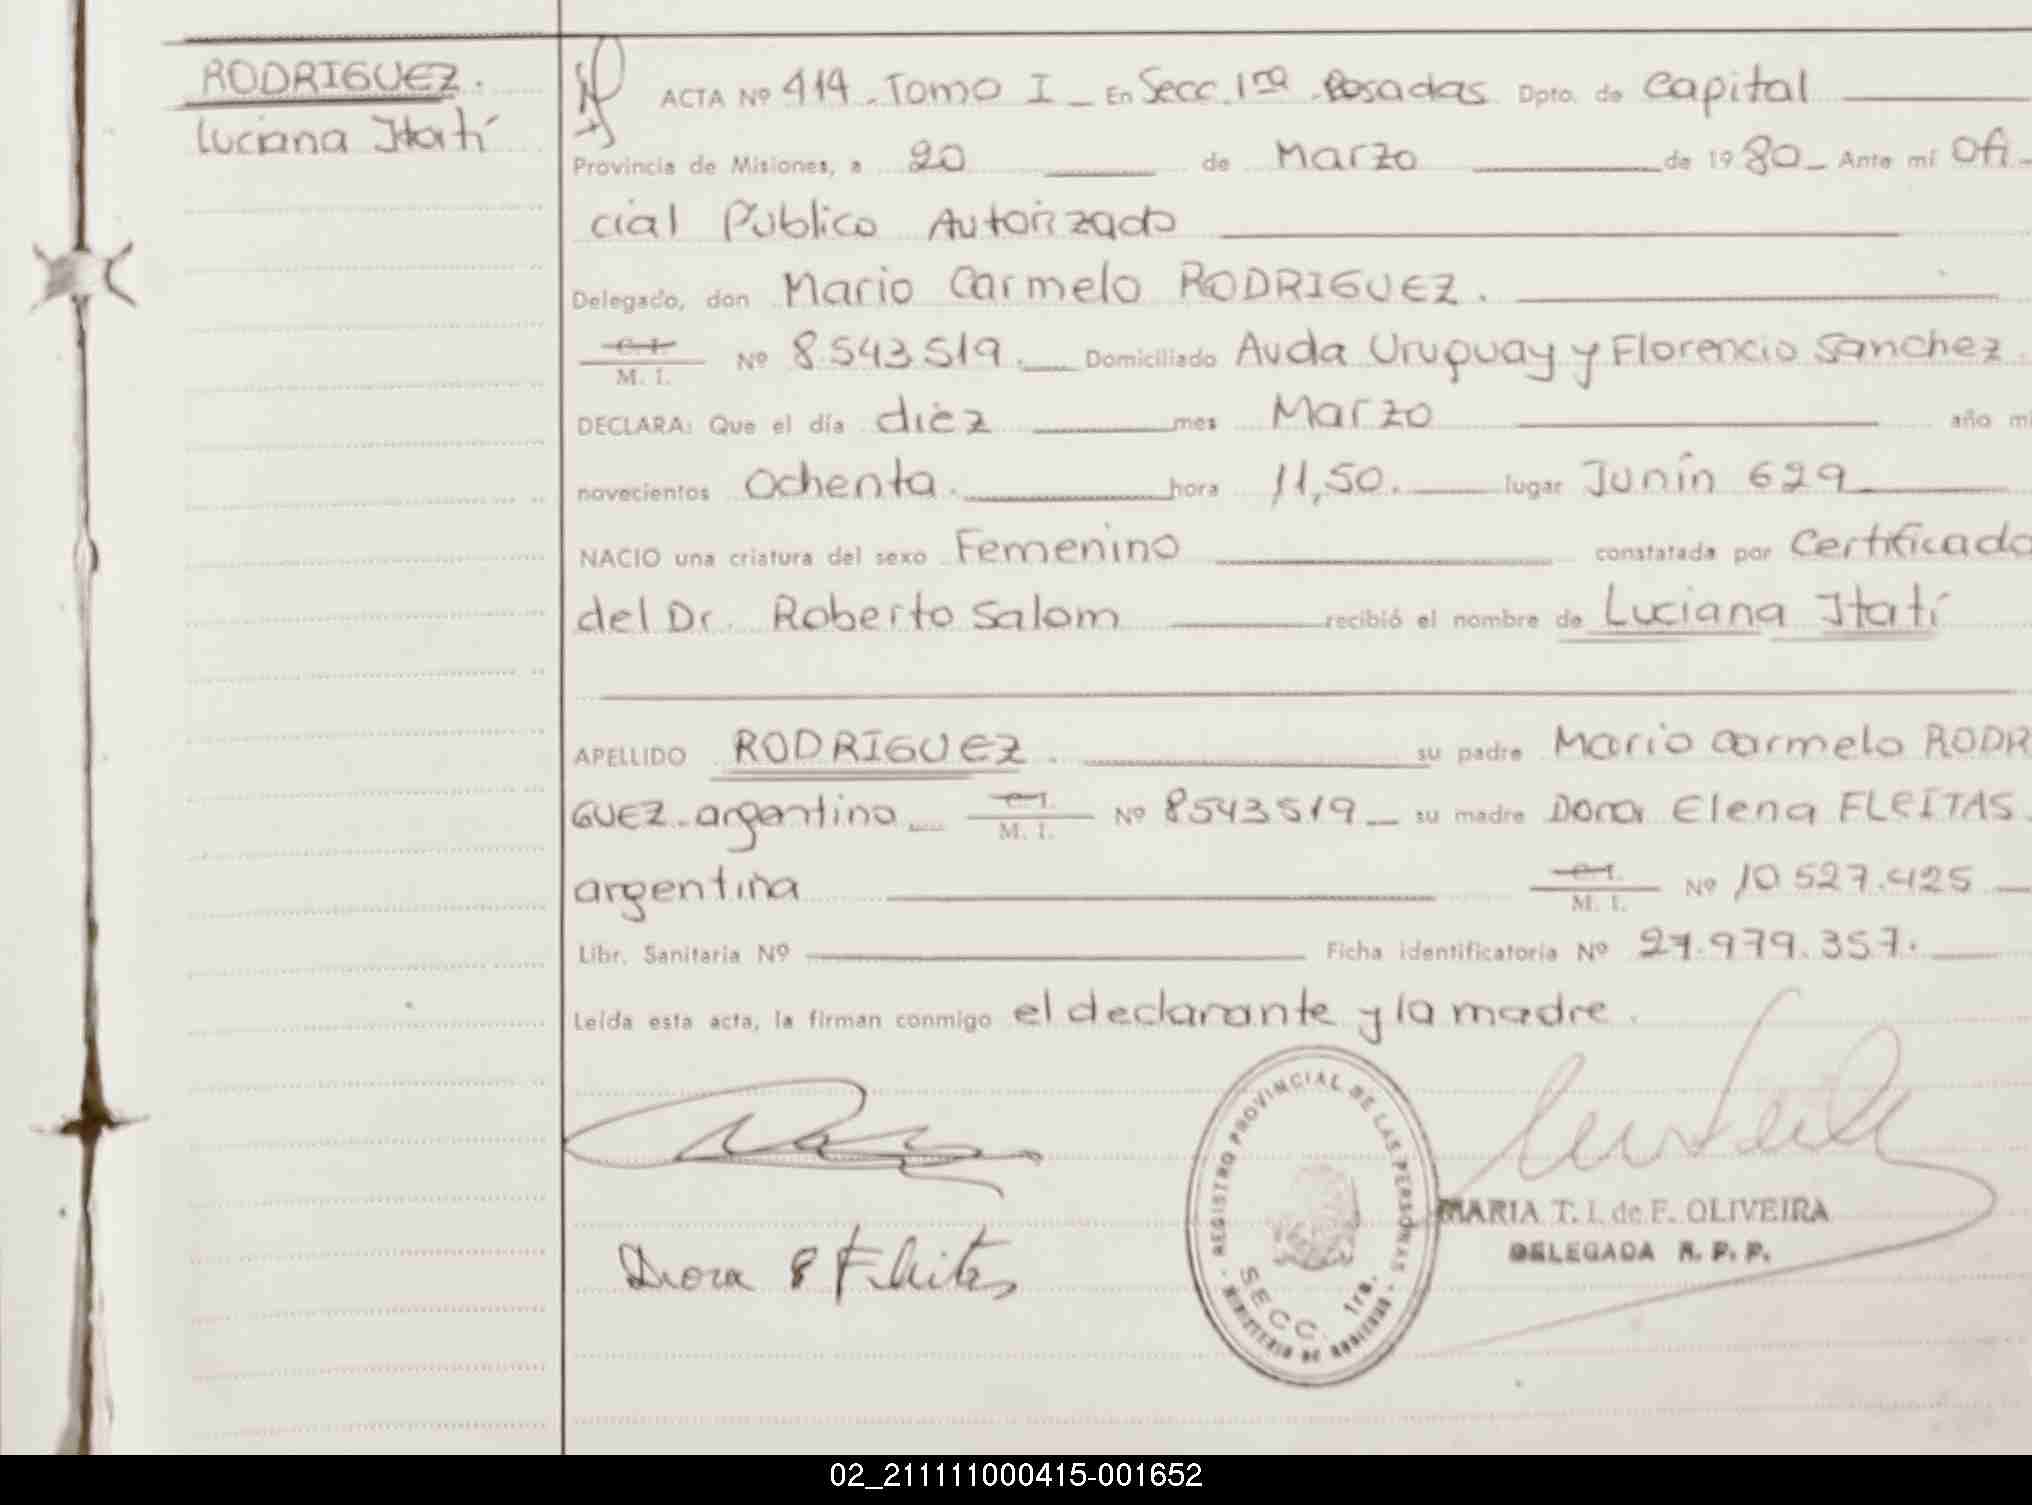 RODRIGUEZ.
Luciana Itatí
ACTA Nº 414. Tomo I _ En Secc. 1ra Posadas Dpto. de Capital
Provincia de Misiones, a 20 de Marzo de 1980_ Ante mí Ofi
cial Público Autorizado
Delegado, don Mario Carmelo RODRIGUEZ.
C. I.
M. I. Nº 8.543.519. Domiciliado Avda Uruguay y Florencio Sanchez.
DECLARA: Que el día diez mes Marzo año mi
novecientos Ochenta. hora 11,50. lugar Junín 629
NACIO una criatura del sexo Femenino constatada por Certificado
del Dr. Roberto Salom recibió el nombre de Luciana Itatí
APELLIDO RODRIGUEZ. su padre Mario Carmelo RODR
GUEZ - argentino C.I. M. I. Nº 8543519_ su madre Dora Elena FLEITAS.
argentina C.I. M. I. Nº 10.527.425
Libr. Sanitaria Nº Ficha identificatoria Nº 27.979.357.
Leída esta acta, la firman conmigo el declarante y la madre.
REGISTRO PROVINCIAL DE LAS PERSONAS
SECC. 1ra.
MINISTERIO DE GOBIERNO
MARIA T. I. de F. OLIVEIRA
DELEGADA R. P. P.
Dora E Fleitas
02_211111000415-001652